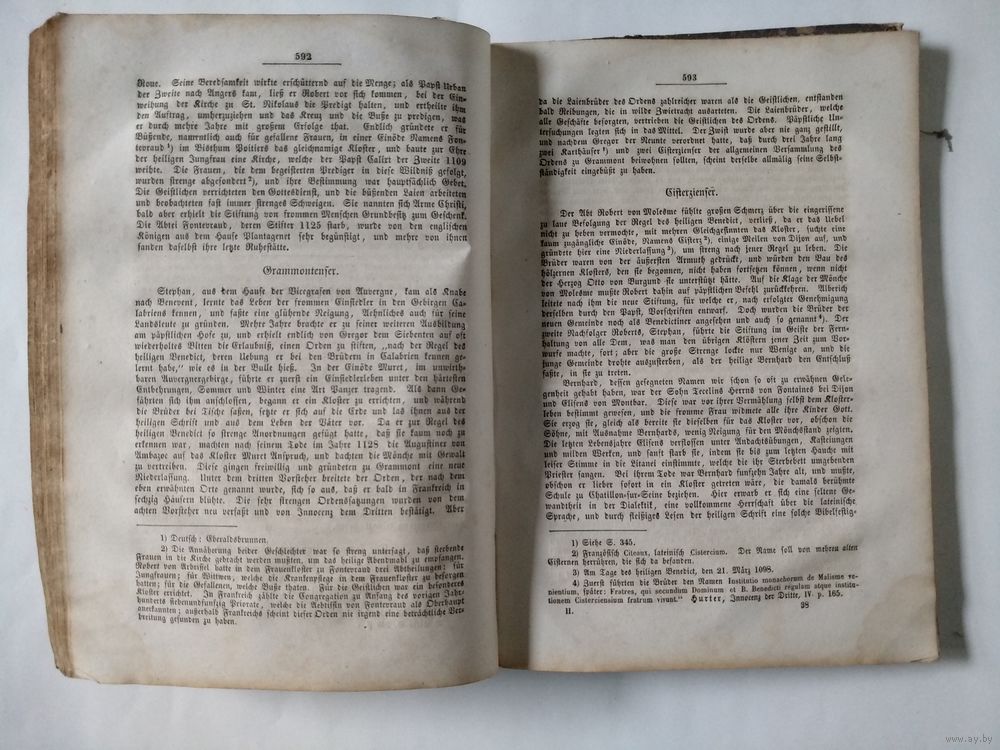 592
Roue. Seine Beredsamkeit wirkte erschütternd auf die Menge; als Papst Urban
der Zweite nach Angers kam, ließ er Robert vor sich kommen, bei der Ein-
weihung der Kirche zu St. Nikolaus die Predigt halten, und ertheilte ihm
den Auftrag, umherzuziehen und das Kreuz und die Buße zu predigen, was
er durch mehre Jahre mit großem Erfolge that. Endlich gründete er für
Büßende, namentlich auch für gefallene Frauen, in einer Einöde Namens Fon-
tevraud ¹) im Bisthum Poitiers das gleichnamige Kloster, und baute zur Ehre
der heiligen Jungfrau eine Kirche, welche der Papst Calixt der Zweite 1109
weihte. Die Frauen, die dem begeisterten Prediger in diese Wildniß gefolgt,
wurden strenge abgesondert ²), und ihre Bestimmung war hauptsächlich Gebet.
Die Geistlichen verrichteten den Gottesdienst, und die büßenden Laien arbeiteten
und beobachteten fast immer strenges Schweigen. Sie nannten sich Arme Christi,
bald aber erhielt die Stiftung von frommen Menschen Grundbesitz zum Geschenk.
Die Abtei Fontevraud, deren Stifter 1125 starb, wurde von den englischen
Königen aus dem Hause Plantagenet sehr begünstigt, und mehre von ihnen
fanden daselbst ihre letzte Ruhestätte.
Grammontenser.
Stephan, aus dem Hause der Vicegrafen von Auvergne, kam als Knabe
nach Benevent, lernte das Leben der frommen Einsiedler in den Gebirgen Ca-
labriens kennen, und faßte eine glühende Neigung, Aehnliches auch für seine
Landsleute zu gründen. Mehre Jahre brachte er zu seiner weiteren Ausbildung
am päpstlichen Hofe zu, und erhielt endlich von Gregor dem Siebenten auf oft
wiederholtes Bitten die Erlaubniß, einen Orden zu stiften, „nach der Regel des
heiligen Benedict, deren Uebung er bei den Brüdern in Calabrien kennen ge-
lernt habe,“ wie es in der Bulle hieß. In der Einöde Muret, im unwirth-
baren Auvergnergebirge, führte er zuerst ein Einsiedlerleben unter den härtesten
Entbehrungen, Sommer und Winter eine Art Panzer tragend. Als dann Ge-
fährten sich ihm anschlossen, begann er ein Kloster zu errichten, und während
die Brüder bei Tische saßen, setzte er sich auf die Erde und las ihnen aus der
heiligen Schrift und aus dem Leben der Väter vor. Da er zur Regel des
heiligen Benedict so strenge Anordnungen gefügt hatte, daß sie kaum noch zu
erkennen war, machten nach seinem Tode im Jahre 1128 die Augustiner von
Ambazac auf das Kloster Muret Anspruch, und dachten die Mönche mit Gewalt
zu vertreiben. Diese gingen freiwillig und gründeten zu Grammont eine neue
Niederlassung. Unter dem dritten Vorsteher breitete der Orden, der nach dem
eben erwähnten Orte genannt wurde, sich so aus, daß er bald in Frankreich in
sechzig Häusern blühte. Die sehr strengen Ordenssatzungen wurden von dem
achten Vorsteher neu verfaßt und von Innocenz dem Dritten bestätigt. Aber
1) Deutsch: Eberaldsbrunnen.
2) Die Annäherung beider Geschlechter war so streng untersagt, daß sterbende
Frauen in die Kirche gebracht werden mußten, um das heilige Abendmahl zu empfangen.
Robert von Arbrissel hatte in Fontevraud drei Abtheilungen: für
Jungfrauen; für Wittwen, welche die Krankenpflege in dem Frauenkloster zu besorgen
hatten; für die Gefallenen, welche Buße thaten. Für die Geistlichen war ein besonderes
Kloster errichtet. In Frankreich zählte die Congregation zu Anfang des vorigen Jahr-
hunderts siebenundfünfzig Priorate, welche die Aebtissin von Fontevraud als Oberhaupt
anerkannten; außerhalb Frankreichs scheint dieser Orden nie irgend eine beträchtliche Ver-
breitung gefunden zu haben.
593
da die Laienbrüder des Ordens zahlreicher waren als die Geistlichen, entstanden
bald Reibungen, die in wilde Zwietracht ausarteten. Die Laienbrüder, welche
alle Geschäfte besorgten, vertrieben die Geistlichen des Ordens. Päpstliche Un-
tersuchungen legten sich in das Mittel. Der Zwist wurde aber nie ganz gestillt,
und nachdem Gregor der Neunte verordnet hatte, daß durch drei Jahre lang
zwei Karthäuser ¹) und zwei Cisterzienser der allgemeinen Versammlung des
Ordens zu Grammont beiwohnen sollten, scheint derselbe allmälig seine Selb-
ständigkeit eingebüßt zu haben.
Cisterzienser.
Der Abt Robert von Molesme fühlte großen Schmerz über die eingerissene
zu laue Befolgung der Regel des heiligen Benedict, verließ, da er das Uebel
nicht zu heben vermochte, mit mehren Gleichgesinnten das Kloster, suchte eine
kaum zugängliche Einöde, Namens Cisterz ²), einige Meilen von Dijon auf, und
gründete hier eine Niederlassung ³), um streng nach jener Regel zu leben. Die
Brüder waren von der äußersten Armuth gedrückt, und würden den Bau des
hölzernen Klosters, den sie begonnen, nicht haben fortsetzen können, wenn nicht
der Herzog Otto von Burgund sie unterstützt hätte. Auf die Klage der Mönche
von Molesme mußte Robert dahin auf päpstlichen Befehl zurückkehren. Alberich
leitete nach ihm die neue Stiftung, für welche er, nach erfolgter Genehmigung
derselben durch den Papst, Vorschriften entwarf. Doch wurden die Brüder der
neuen Gemeinde noch als Benedictiner angesehen und auch so genannt ⁴). Der
zweite Nachfolger Roberts, Stephan, führte die Stiftung im Geiste der Fern-
haltung von alle Dem, was man den übrigen Klöstern jener Zeit zum Vor-
wurfe machte, fort; aber die große Strenge lockte nur Wenige an, und die
junge Gemeinde drohte auszusterben, als der heilige Bernhard den Entschluß
faßte, in sie zu treten.
Bernhard, dessen gesegneten Namen wir schon so oft zu erwähnen Gele-
genheit gehabt haben, war der Sohn Tecelins Herrns von Fontaines bei Dijon
und Elisens von Montbar. Diese war vor ihrer Vermählung selbst dem Kloster-
leben bestimmt gewesen, und die fromme Frau widmete alle ihre Kinder Gott.
Sie erzog sie, gleich als bereite sie dieselben für das Kloster vor, obschon die
Söhne, mit Ausnahme Bernhards, wenig Neigung für den Mönchsstand zeigten.
Die letzten Lebensjahre Elisens verflossen unter Andachtsübungen, Kasteiungen
und milden Werken, und sanft starb sie, indem sie bis zum letzten Hauche mit
leiser Stimme in die Litanei einstimmte, welche die ihr Sterbebett umgebenden
Priester sangen. Bei ihrem Tode war Bernhard fünfzehn Jahre alt, und mußte,
obschon er lieber sofort in ein Kloster getreten wäre, die damals berühmte
Schule zu Chatillon-sur-Seine beziehen. Hier erwarb er sich eine seltene Ge-
wandtheit in der Dialektik, eine vollkommene Herrschaft über die lateinische
Sprache, und durch fleißiges Lesen der heiligen Schrift eine solche Bibelfestig-
1) Siehe S. 345.
2) Französisch Citeaux, lateinisch Cistercium. Der Name soll von mehren alten
Cisternen herrühren, die sich da befanden.
3) Am Tage des heiligen Benedict, den 21. März 1098.
4) Zuerst führten die Brüder den Namen Institutio monachorum de Malisme ve-
nientium, später: Fratres, qui secundum Dominum et B. Benedicti regulam atque institu-
tionem Cisterciensium fratrum vivunt.“ Hurter, Innocenz der Dritte, IV. p. 165.
II.
38
www.ay.by